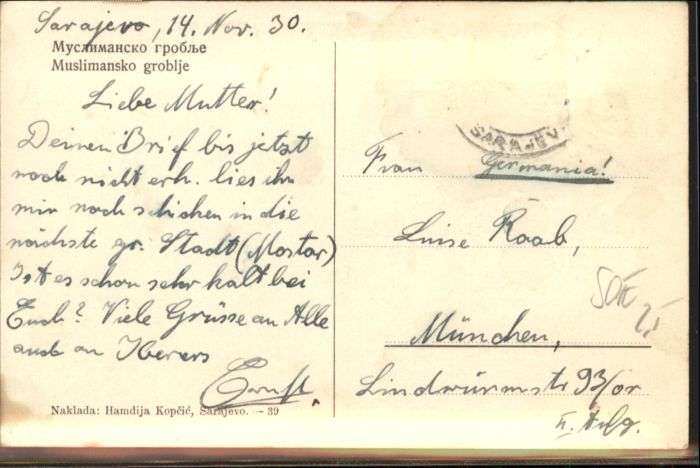 Sarajevo, 14. Nov. 30.
Муслиманско гробље
Muslimansko groblje
Liebe Mutter!
Deinen Brief bis jetzt
noch nicht erh. lies ihn
mir noch schicken in die
nächste gr. Stadt (Mostar)
Ist es schon sehr kalt bei
Euch? Viele Grüsse an Alle
auch an
Ernst.
Naklada: Hamdija Kopčić, Sarajevo. – 39
SARAJEV
Frau Germania!
Luise Raab,
München,
Lindwurmstr 93/or
II. Aufg.